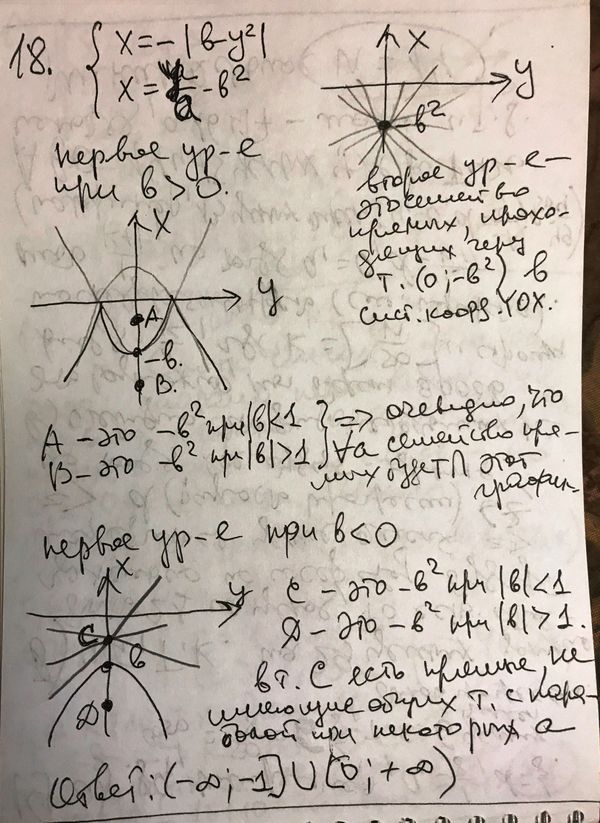 18. { x = -|в-y²|
x = y/a - в²
x
y
-в²
первое ур-е
при в > 0.
второе ур-е -
это семейство
прямых, прохо-
дящих через
т. (0; -в²) в
сист. коорд. YOX.
x
y
A
-в.
B.
A - это -в² при |в|<1
B - это -в² при |в|>1 } => очевидно, что
∀a семейство пря-
мых будет ∩ этот
график.
первое ур-е при в<0
x
y
C
в
D
C - это -в² при |в|<1
D - это -в² при |в|>1.
в т. C есть прямые, не
имеющие общих т. с пара-
болой при некоторых a
Ответ: (-∞; -1] ∪ [0; +∞)